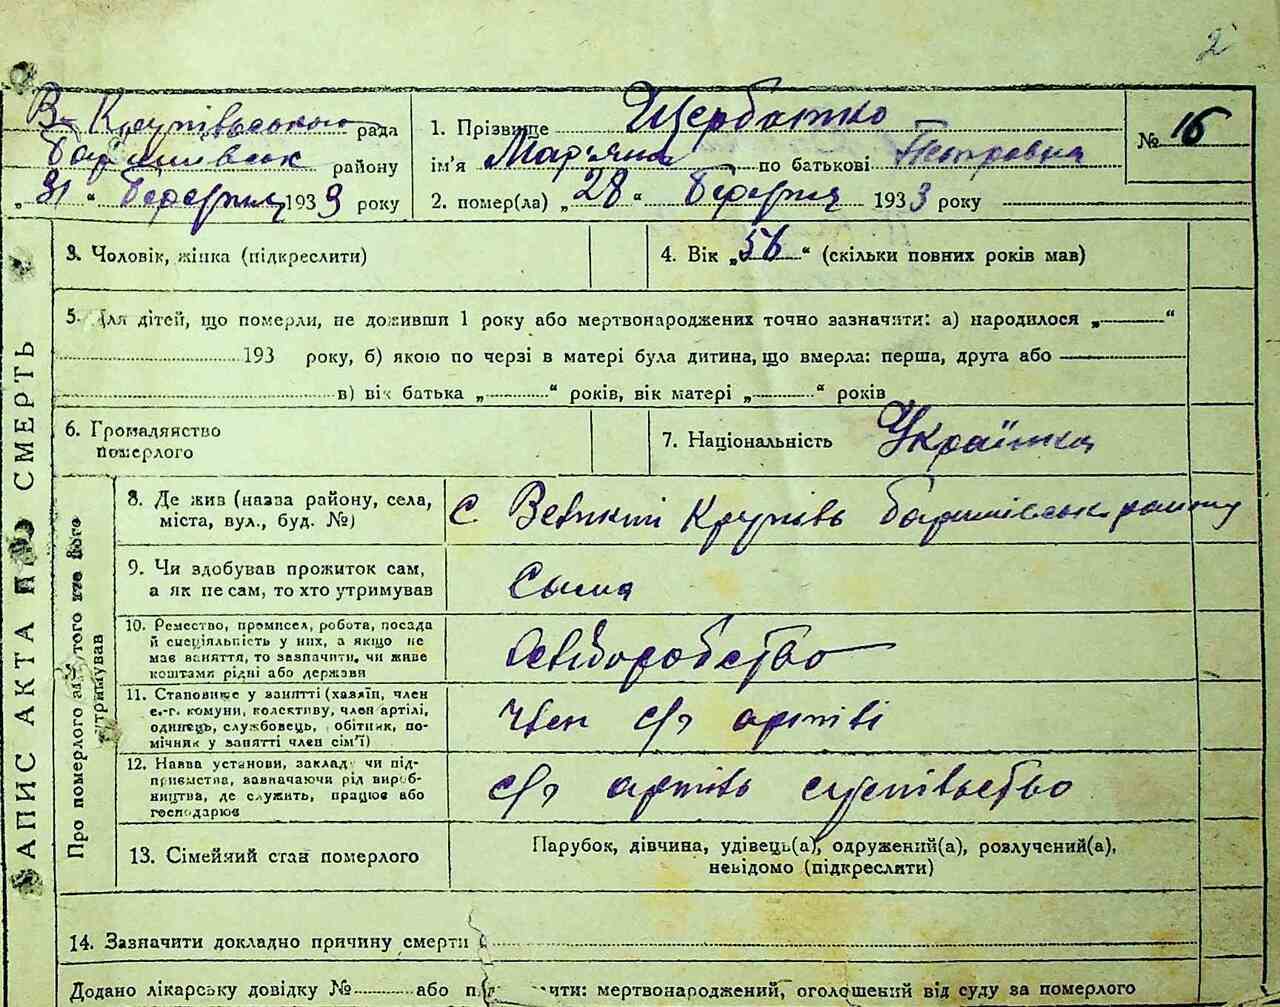 2
В. Крупівською рада
Баришівськ району
„31“ березня 1933 року
1. Прізвище Щербатко
ім'я Мар'яна по батькові Петровна
2. помер(ла) „28“ березня 1933 року
№ 16
3. Чоловік, жінка (підкреслити)
4. Вік „56“ (скільки повних років мав)
5. Для дітей, що померли, не доживши 1 року або мертвонароджених точно зазначити: а) народилося „ “
193 року, б) якою по черзі в матері була дитина, що вмерла: перша, друга або
в) вік батька „ “ років, вік матері „ “ років
6. Громадянство
померлого
7. Національність Українка
ЗАПИС АКТА ПРО СМЕРТЬ
Про померлого або того хто його
утримував
8. Де жив (назва району, села,
міста, вул., буд. №)
с. Великий Крупіль Баришівськ району
9. Чи здобував прожиток сам,
а як не сам, то хто утримував
Сама
10. Ремество, промисел, робота, посада
й спеціяльність у них, а якщо не
має заняття, то зазначити, чи живе
коштами рідні або держави
хліборобство
11. Становище у занятті (хазяїн, член
с.-г. комуни, колективу, член артілі,
одинець, службовець, робітник, по-
мічник у занятті член сім'ї)
член с/г артілі
12. Назва установи, закладу чи під-
приємства, зазначаючи рід вироб-
ництва, де служить, працює або
господарює
с/г артіль
13. Сімейний стан померлого
Парубок, дівчина, удівець(а), одружений(а), розлучений(а),
невідомо (підкреслити)
14. Зазначити докладно причину смерти
Додано лікарську довідку № або мертвонароджений, оголошений від суду за померлого